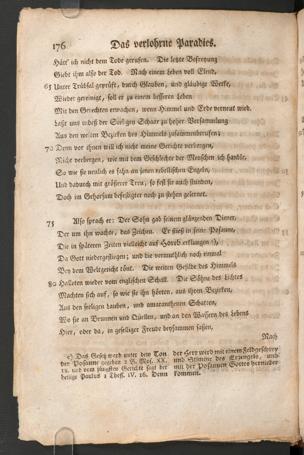 176 Das verlohrne Paradies.
Hätt' ich nicht dem Tode gerufen. Die letzte Befreyung
Giebt ihm also der Tod. Nach einem Leben voll Elend,
65 Unter Trübsal geprüft, durch Glauben, und gläubige Werke,
Wieder gereinigt, soll er zu einem bessern Leben
Mit den Gerechten erwachen, wenn Himmel und Erde verneut wird.
Laßt uns indeß der Seelgen Schaar zu hoher Versammlung
Aus den weiten Bezirken des Himmels zusammenberufen;
70 Denn vor ihnen will ich nicht meine Gerichte verbergen,
Nicht verbergen, wie mit dem Geschlechte der Menschen ich handle,
So wie sie neulich es sahn an jenen rebellischen Engeln,
Und dadurch mit grösserer Treu, so fest sie auch stunden,
Doch im Gehorsam befestigter noch zu stehen gelernet.
75 Also sprach er: Der Sohn gab seinem glänzenden Diener,
Der um ihn wachte, das Zeichen. Er stieß in seine Posaune,
Die in späteren Zeiten vielleicht auf Horeb erklungen ¹),
Da Gott niedergestiegen; und die vermuthlich noch einmal
Bey dem Weltgerichte tönt. Die weiten Gefilde des Himmels
80 Halleten wieder vom englischen Schall. Die Söhne des Lichtes
Machten sich auf, so wie sie ihn hörten, aus ihren Bezirken,
Aus den seeligen Lauben, und amaranthenen Schatten,
Wo sie an Brunnen und Quellen, und an den Wassern des Lebens
Hier, oder da, in geselliger Freude beysammen saßen,
Nach
Das Gesetz ward unter dem Ton
der Posaune gegeben 2 B. Mos. XX.
18. und vom jüngsten Gerichte sagt der
heilige Paulus 1 Thess. IV. 16. Denn
der Herr wird mit einem Feldgeschrey
und Stimme des Erzengels, und
mit der Posaunen Gottes hernieder
kommen.